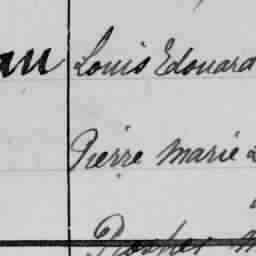 au Louis Edouard
Pierre Marie